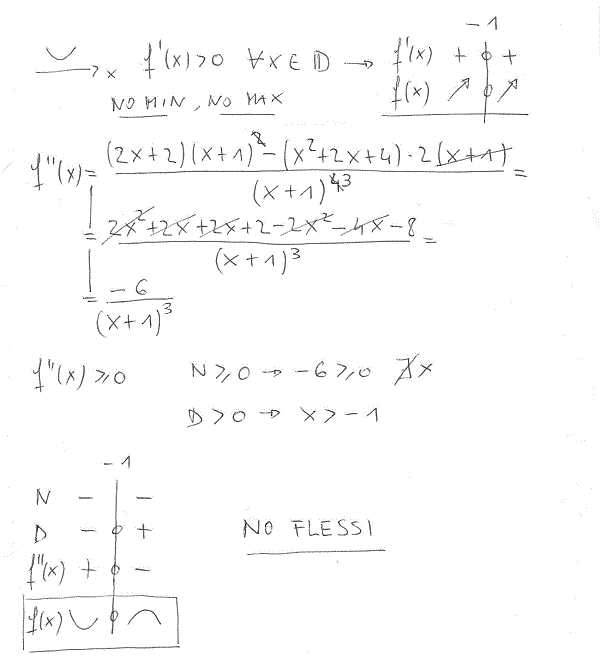 x f'(x) > 0 ∀x ∈ D → f'(x) + + -1
NO MIN, NO MAX f(x) ↗ ↗
f''(x) = ((2x+2)(x+1)² - (x²+2x+4)·2(x+1)) / (x+1)⁴ ³ =
= (2x²+2x+2x+2-2x²-4x-8) / (x+1)³ =
= -6 / (x+1)³
f''(x) ⩾ 0 N ⩾ 0 → -6 ⩾ 0 ∄x
D > 0 → x > -1
-1
N - -
D - +
NO FLESSI
f''(x) + -
f(x) ◡ ◠